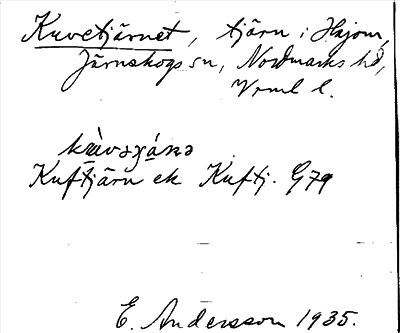 Kuvetjärnet, tjärn i Hajom,
Järnskogs sn, Nordmarks hd,
Vrml l.
Kuftjärn ek Kuftj. G79
E. Andersson 1935.